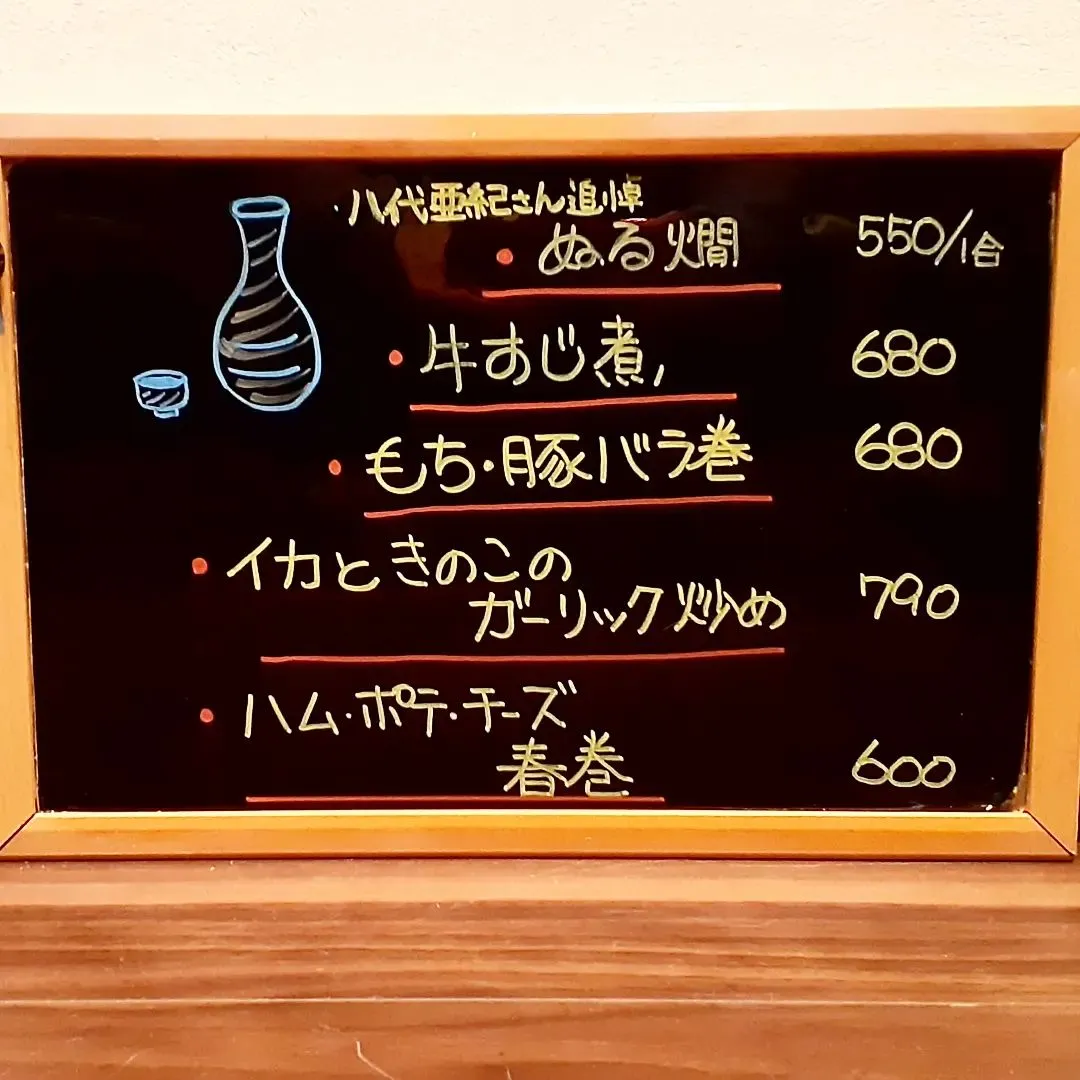 ・八代亜紀さん追悼
・ぬる燗 550/1合
・牛すじ煮 680
・もち・豚バラ巻 680
・イカときのこの
ガーリック炒め 790
・ハム・ポテ・チーズ
春巻 600